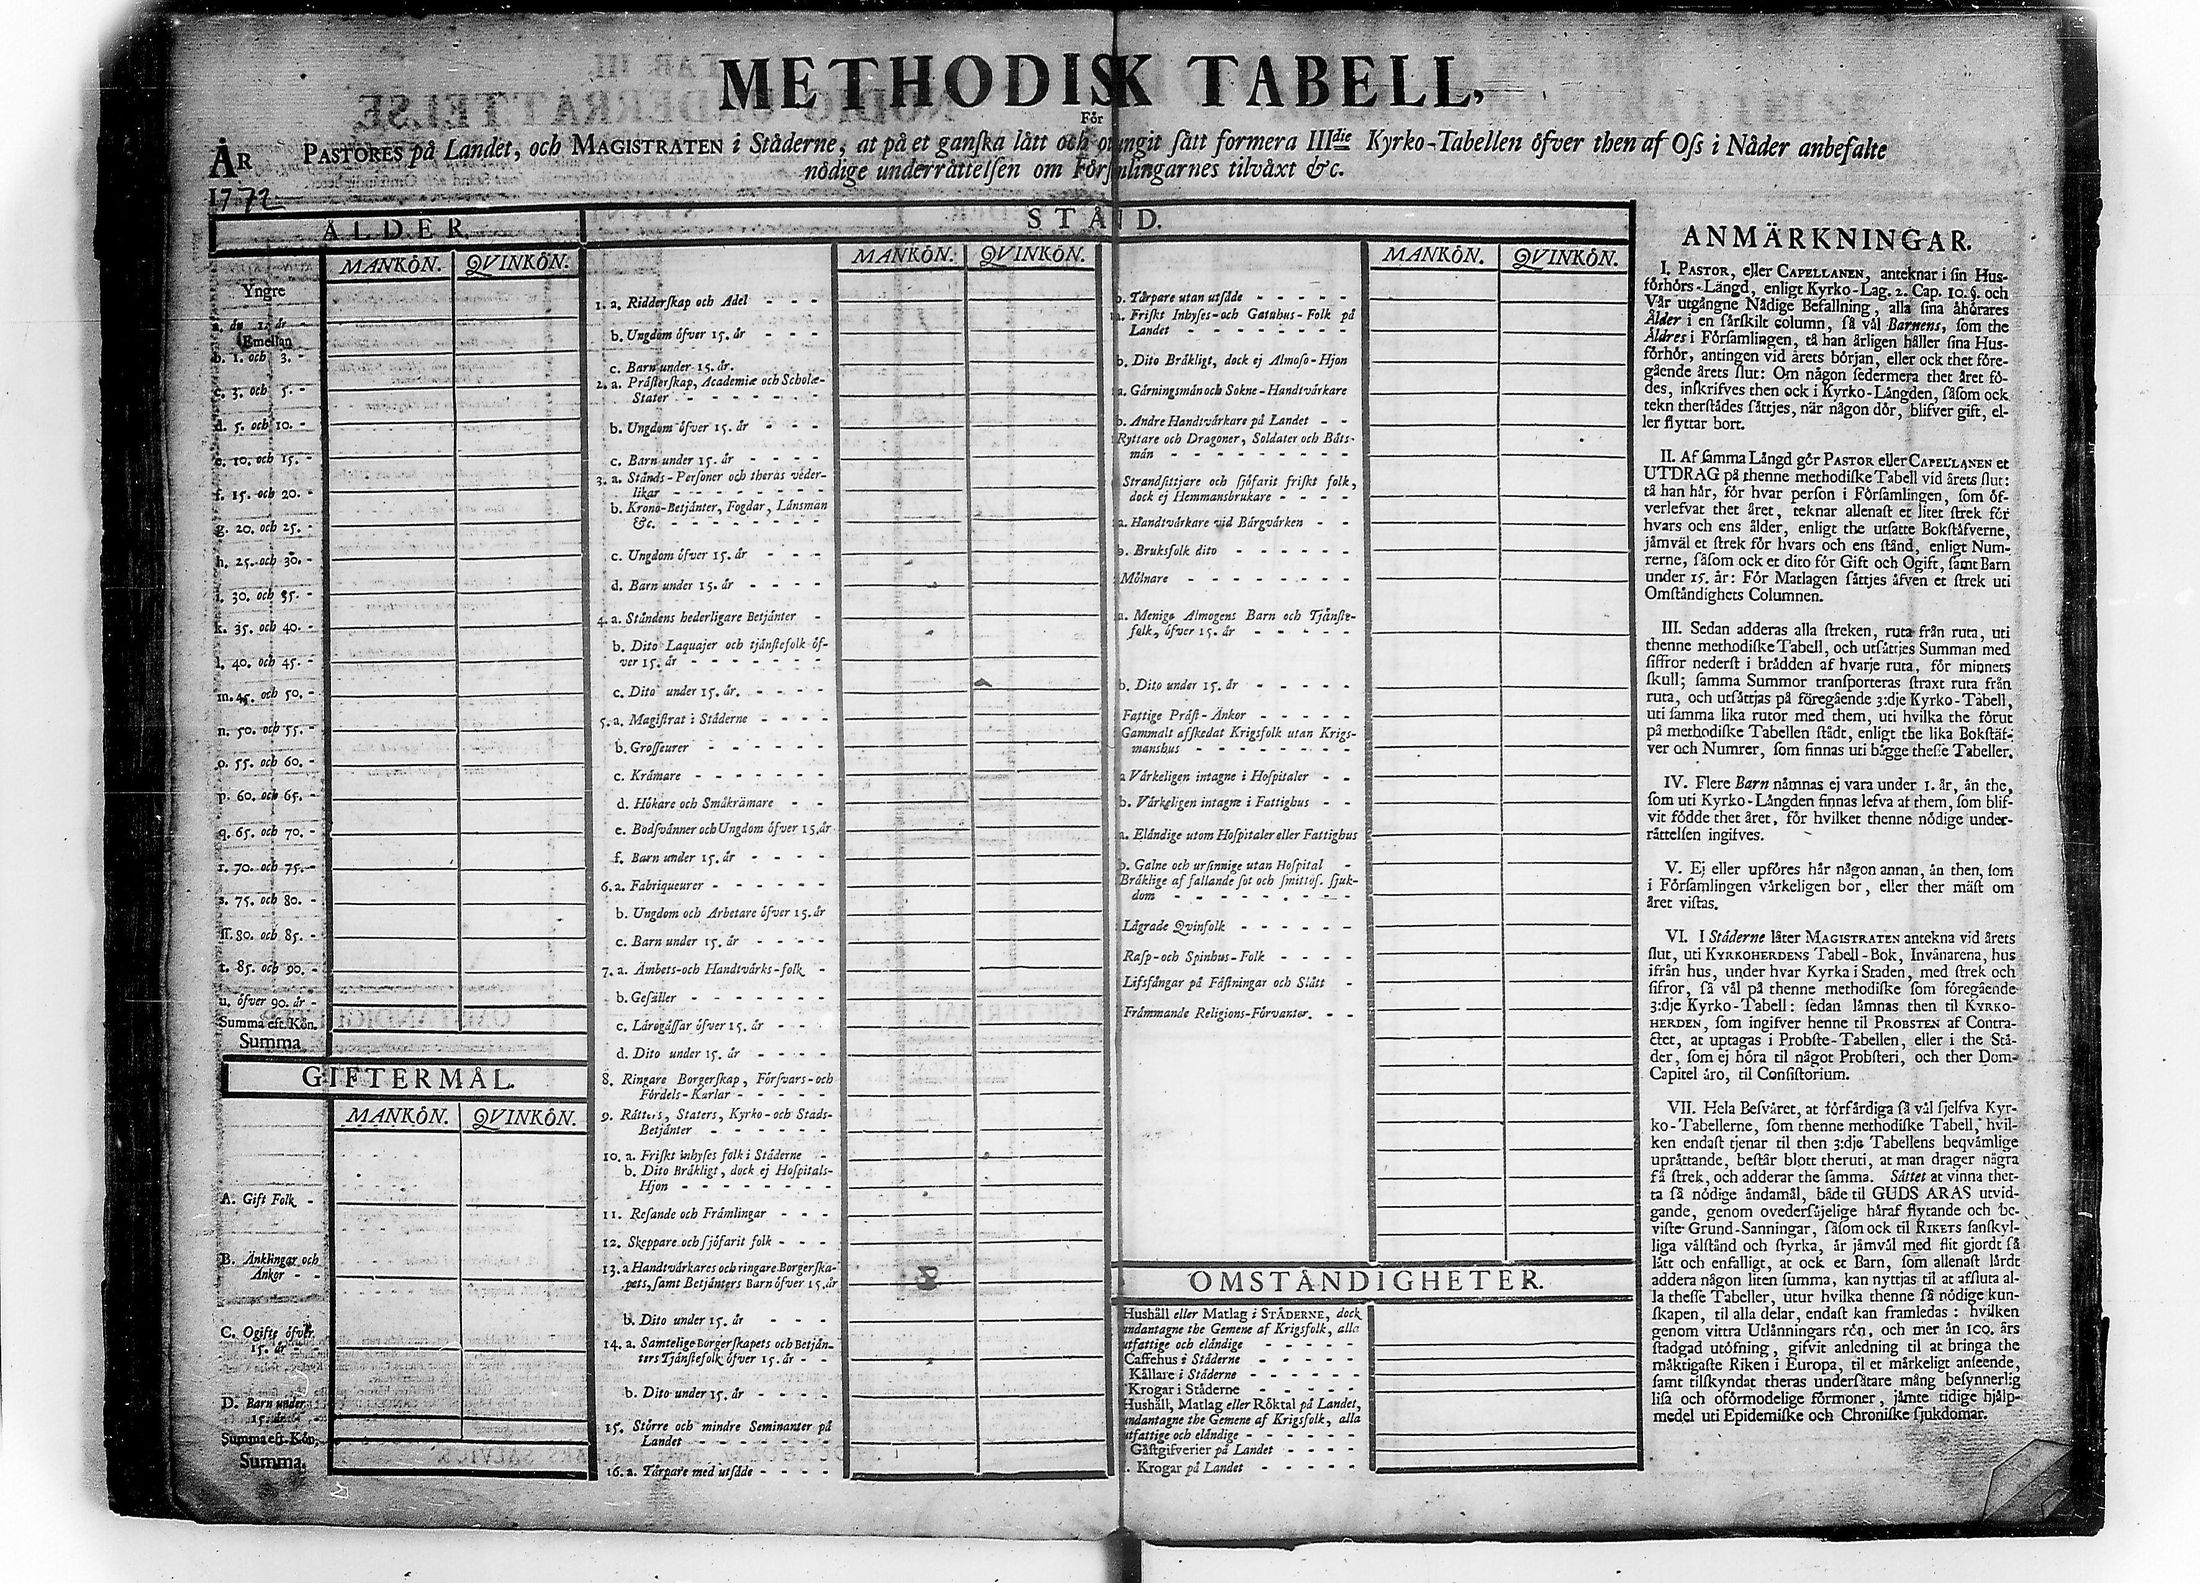 METHODISK TABELL,
För
ÅR PASTORES på Landet, och MAGISTRATEN i Ståderne, at på et ganſka lått och otvungit ſått formera IIIdie Kyrko-Tabellen öfver then af Oſs i Nåder anbefalte
1772 nödige underråttelſen om Förſamlingarnes tilvåxt &c.
ÅLDER.
MANKÖN. QVINKÖN.
Yngre
a. än 1. år -
Emellan
b. 1. och 3. -
c. 3. och 5. -
d. 5. och 10. -
e. 10. och 15. -
f. 15. och 20. -
g. 20. och 25. -
h. 25. och 30. -
i. 30. och 35. -
k. 35. och 40. -
l. 40. och 45. -
m. 45. och 50. -
n. 50. och 55. -
o. 55. och 60. -
p. 60. och 65. -
q. 65. och 70. -
r. 70. och 75. -
s. 75. och 80. -
ſſ. 80. och 85. -
t. 85. och 90. -
u. öfver 90. år -
Summa eft. Kön.
Summa
GIFTERMÅL.
MANKÖN. QVINKÖN.
A. Gift Folk -
B. Änklingar och
Änkor - -
C. Ogifte öfver
15. år - -
D. Barn under
15. år -
Summa eft. Kön.
Summa.
STÅND.
MANKÖN. QVINKÖN.
1. a. Ridderſkap och Adel - - -
b. Ungdom öfver 15. år - - -
c. Barn under 15. år.
2. a. Pråſterſkap, Academiæ och Scholæ-
Stater - - - - - - -
b. Ungdom öfver 15. år - - -
c. Barn under 15. år - - - -
3. a. Stånds-Perſoner och theras veder-
likar - - - - - - -
b. Krono-Betjånter, Fogdar, Lånsmån
&c. - - - - - - -
c. Ungdom öfver 15. år - - -
d. Barn under 15. år - - - -
4. a. Ståndens hederligare Betjånter -
b. Dito Laquajer och tjånſtefolk öf-
ver 15. år - - - - - - -
c. Dito under 15. år. - - - -
5. a. Magiſtrat i Ståderne - - - -
b. Groſſeurer - - - - - -
c. Kråmare - - - - - - -
d. Hökare och Småkråmare - -
e. Bodſvånner och Ungdom öfver 15. år
f. Barn under 15. år - - - -
6. a. Fabriqueurer - - - - - -
b. Ungdom och Arbetare öfver 15. år
c. Barn under 15. år - - - -
7. a. Åmbets-och Handtvårks-folk -
b. Geſåller - - - - - - -
c. Lårogåſſar öfver 15. år - - -
d. Dito under 15. år - - - -
8. Ringare Borgerſkap, Förſvars-och
Fördels-Karlar - - - - -
9. Råtters, Staters, Kyrko-och Stads-
Betjånter - - - - - -
10. a. Friſkt inhyſes folk i Ståderne -
b. Dito Bråkligt, dock ej Hoſpitals-
Hjon - - - - - - -
11. Reſande och Fråmlingar - - -
12. Skeppare och ſjöfarit folk - - -
13. a Handtvårkares och ringare Borgerſka-
pets, ſamt Betjånters Barn öfver 15. år
b. Dito under 15. år - - -
14. a. Samtelige Borgerſkapets och Betjån-
ters Tjånſtefolk öfver 15. år - -
b. Dito under 15. år - - - -
15. Större och mindre Seminanter på
Landet - - - - - - -
16. a. Torpare med utſåde - - - -
MANKÖN. QVINKÖN.
b. Torpare utan utſåde - - - - -
a. Friſkt Inhyſes-och Gatuhus-Folk på
Landet - - - - - - -
b. Dito Bråkligt, dock ej Almoſo-Hjon
a. Gårningsmån och Sokne-Handtvårkare
b. Andre Handtvårkare på Landet - -
Ryttare och Dragoner, Soldater och Båts-
mån - - - - - - - - -
Strandſittjare och ſjöfarit friſkt folk,
dock ej Hemmansbrukare - - - -
a. Handtvårkare vid Bårgvårken - -
b. Bruksfolk dito - - - - - -
Mölnare - - - - - - - -
a. Menige Almogens Barn och Tjånſte-
folk, öfver 15. år - - - - -
b. Dito under 15. år - - - - -
Fattige Pråſt-Änkor - - - - -
Gammalt afſkedat Krigsfolk utan Krigs-
manshus - - - - - - - -
a Vårkeligen intagne i Hoſpitaler - -
b. Vårkeligen intagne i Fattighus - -
a. Elåndige utom Hoſpitaler eller Fattighus
b. Galne och urſinnige utan Hoſpital -
Bråklige af fallande ſot och ſmittoſ. ſjuk-
dom - - - - - - - -
Lågrade Qvinfolk - - - - - -
Raſp-och Spinhus-Folk - - - -
Lifsfångar på Fåſtningar och Slått -
Fråmmande Religions-Förvanter. - -
OMSTÅNDIGHETER.
Hushåll eller Matlag i STÅDERNE, dock
undantagne the Gemene af Krigsfolk, alla
utfattige och elåndige - - - - -
Caffehus i Ståderne - - - - -
Kållare i Ståderne - - - - - -
Krogar i Ståderne - - - - - -
Hushåll, Matlag eller Röktal på Landet,
undantagne the Gemene af Krigsfolk, alla
utfattige och elåndige - - - - - -
Gåſtgifverier på Landet - - - -
Krogar på Landet - - - - -
ANMÄRKNINGAR.
I. PASTOR, eller CAPELLANEN, anteknar i ſin Hus-
förhörs-Långd, enligt Kyrko-Lag. 2. Cap. 10. §. och
Vår utgångne Nådige Befallning, alla ſina åhörares
Ålder i en ſårſkilt column, ſå vål Barnens, ſom the
Äldres i Förſamlingen, tå han årligen håller ſina Hus-
förhör, antingen vid årets början, eller ock thet före-
gående årets ſlut: Om någon ſedermera thet året fö-
des, inſkrifves then ock i Kyrko-Långden, ſåſom ock
tekn therſtådes ſåttjes, når någon dör, blifver gift, el-
ler flyttar bort.
II. Af ſamma Långd gör PASTOR eller CAPELLANEN et
UTDRAG på thenne methodiſke Tabell vid årets ſlut:
tå han hår, för hvar perſon i Förſamlingen, ſom öf-
verlefvat thet året, teknar allenaſt et litet ſtrek för
hvars och ens ålder, enligt the utſatte Bokſtåfverne,
jåmvål et ſtrek för hvars och ens ſtånd, enligt Num-
rerne, ſåſom ock et dito för Gift och Ogift, ſamt Barn
under 15. år: För Matlagen ſåttjes åfven et ſtrek uti
Omſtåndighets Columnen.
III. Sedan adderas alla ſtreken, ruta från ruta, uti
thenne methodiſke Tabell, och utſåttjes Summan med
ſiffror nederſt i brådden af hvarje ruta, för minnets
ſkull; ſamma Summor tranſporteras ſtraxt ruta från
ruta, och utſåttjas på föregående 3:dje Kyrko-Tabell,
uti ſamma lika rutor med them, uti hvilka the förut
på methodiſke Tabellen ſtådt, enligt the lika Bokſtåf-
ver och Numrer, ſom finnas uti bågge theſſe Tabeller.
IV. Flere Barn nåmnas ej vara under 1. år, ån the,
ſom uti Kyrko-Långden finnas lefva af them, ſom blif-
vit födde thet året, för hvilket thenne nödige under-
råttelſen ingifves.
V. Ej eller upföres hår någon annan, ån then, ſom
i Förſamlingen vårkeligen bor, eller ther måſt om
året viſtas.
VI. I Ståderne låter MAGISTRATEN antekna vid årets
ſlut, uti KYRKOHERDENS Tabell-Bok, Invånarena, hus
ifrån hus, under hvar Kyrka i Staden, med ſtrek och
ſifror, ſå vål på thenne methodiſke ſom föregående
3:dje Kyrko-Tabell: ſedan låmnas then til KYRKO-
HERDEN, ſom ingifver henne til PROBSTEN af Contra-
ctet, at uptagas i Probſte-Tabellen, eller i the Stå-
der, ſom ej höra til något Probſteri, och ther Dom-
Capitel åro, til Conſiſtorium.
VII. Hela Beſvåret, at förfårdiga ſå vål ſjelfva Kyr-
ko-Tabellerne, ſom thenne methodiſke Tabell, hvil-
ken endaſt tjenar til then 3:dje Tabellens beqvåmlige
upråttande, beſtår blott theruti, at man drager några
få ſtrek, och adderar the ſamma. Såttet at vinna thet-
ta ſå nödige åndamål, både til GUDS ÅRAS utvid-
gande, genom ovederſåjelige håraf flytande och be-
viſte Grund-Sanningar, ſåſom ock til RIKETS ſanſkyl-
liga vålſtånd och ſtyrka, år jåmvål med flit gjordt ſå
lått och enfalligt, at ock et Barn, ſom allenaſt lårdt
addera någon liten ſumma, kan nyttjas til at afſluta al-
la theſſe Tabeller, utur hvilka thenne ſå nödige kun-
ſkapen, til alla delar, endaſt kan framledas: hvilken
genom vittra Utlånningars rön, och mer ån 100. års
ſtadgad utöfning, gifvit anledning til at bringa the
måktigaſte Riken i Europa, til et mårkeligt anſeende,
ſamt tilſkyndat theras underſåtare mång beſynnerlig
liſa och oförmodelige förmoner, jåmte tidige hjålp-
medel uti Epidemiſke och Chroniſke ſjukdomar.